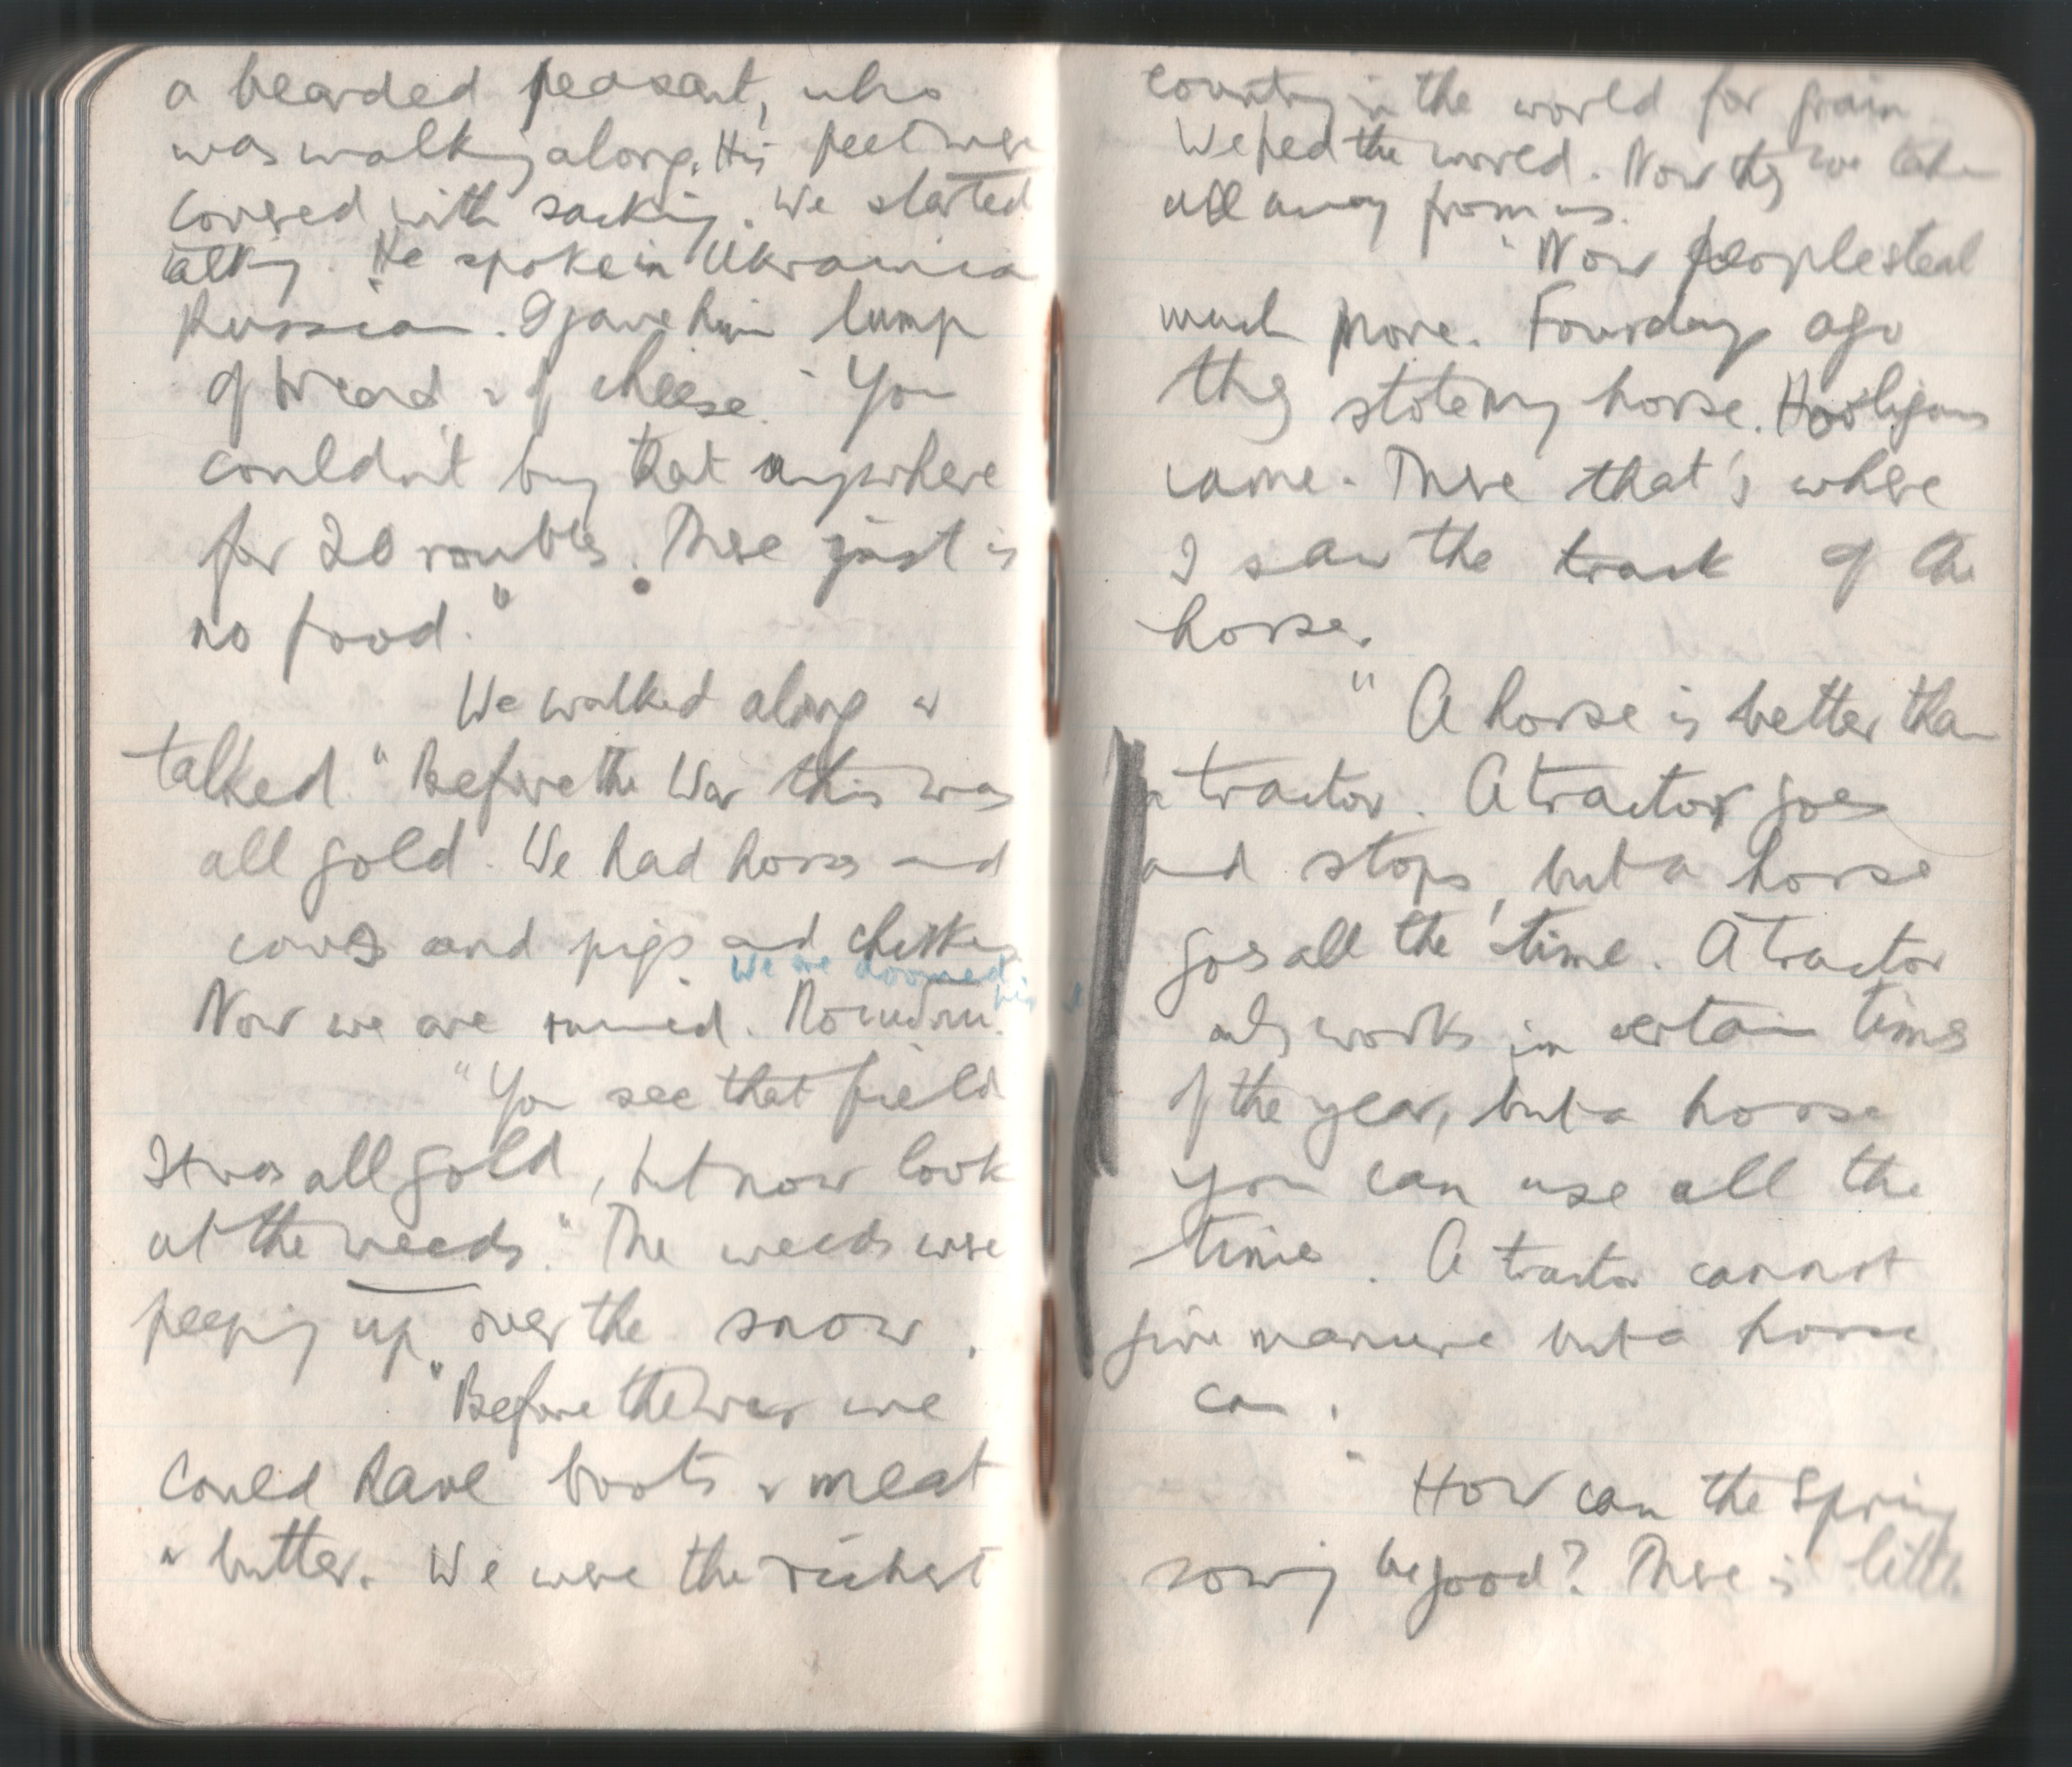 a bearded peasant, who
was walking along. His feet were
covered with sacking. We started
talking. He spoke in Ukrainian
Russian. I gave him lump
of bread & of cheese. "You
couldn't buy that anywhere
for 20 roubles. There just is
no food."
We walked along &
talked "Before the War this was
all gold. We had horses and
cows and pigs and chickens
We are doomed
Now we are ruined. Погибли.
"You see that field
It was all gold, but now look
at the weeds." The weeds were
peeping up over the snow.
"Before the war we
could have boots & meat
& butter. We were the richest
country in the world for grain
We fed the world. Now they have taken
all away from us.
"Now people steal
much more. Four days ago
they stole my horse. Hooligans
came. There that's where
I saw the track of the
horse.
"A horse is better than
a tractor. A tractor goes
and stops, but a horse
goes all the time. A tractor
only works in certain times
of the year, but a horse
you can use all the
time. A tractor cannot
give manure but a horse
can.
"How can the Spring
sowing be good? There is little